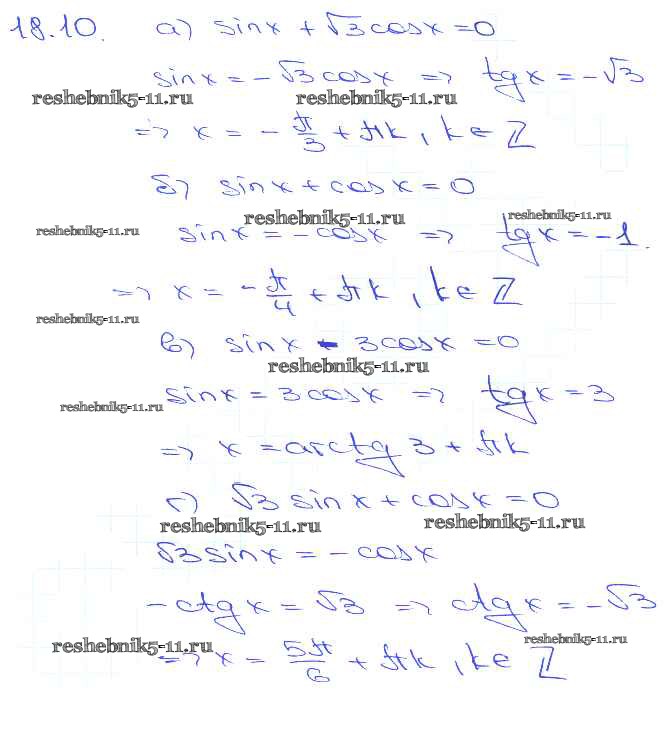 18.10. а) sinx + √3 cosx = 0
sinx = -√3 cosx => tgx = -√3
reshebnik5-11.ru reshebnik5-11.ru
=> x = -π/3 + πk, k ∈ Z
б) sinx + cosx = 0
reshebnik5-11.ru reshebnik5-11.ru
reshebnik5-11.ru sinx = -cosx => tgx = -1.
=> x = -π/4 + πk, k ∈ Z
reshebnik5-11.ru
в) sinx - 3cosx = 0
reshebnik5-11.ru
sinx = 3cosx => tgx = 3
reshebnik5-11.ru
=> x = arctg 3 + πk
г) √3 sinx + cosx = 0
reshebnik5-11.ru reshebnik5-11.ru
√3 sinx = -cosx
-ctgx = √3 => ctgx = -√3
reshebnik5-11.ru reshebnik5-11.ru
=> x = 5π/6 + πk, k ∈ Z